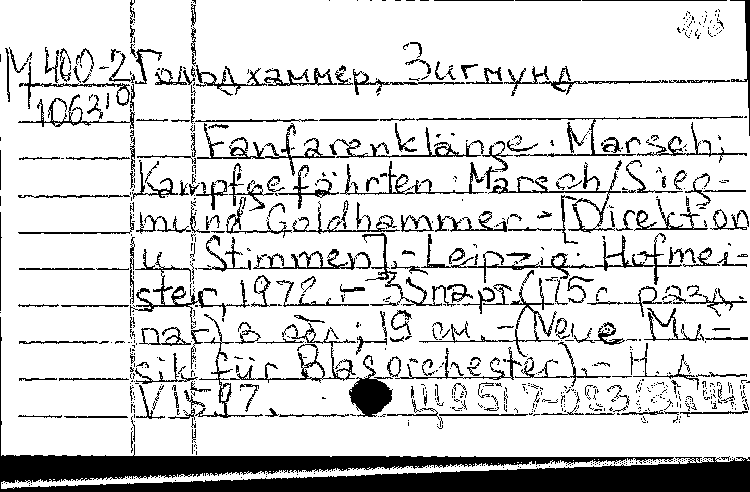 М 400-2 Гольдхаммер, Зигмунд
1063¹⁰
Fanfarenklänge: Marsch;
Kampfgefährten: Marsch/Sieg-
mund Goldhammer. - [Direktion
u. Stimmen]. - Leipzig: Hofmei-
ster, 1972. - 35 парт. (175 с. разд.
паг) в обл; 19 см. - (Neue Mu-
sik für Blasorchester). - Н. д.
V 1597. Щ951.7-093(3)